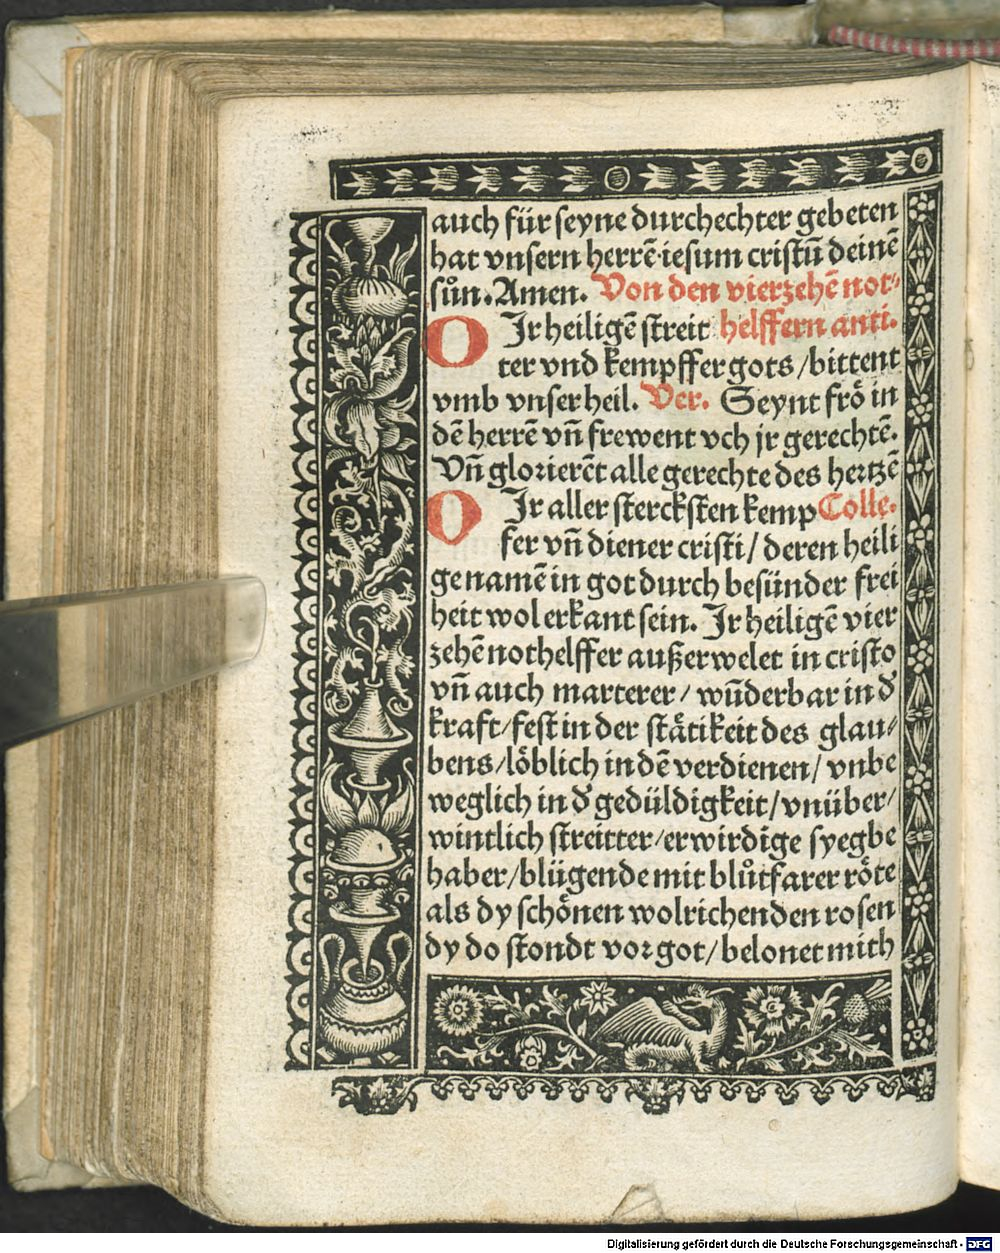 auch für seyne durchechter gebeten
hat vnsern herrē·iesum cristū deinē
sůn. Amen. Von den vierzehē not⸗
O Jr heiligē streit helffern anti.
ter vnd kempffer gots /bittent
vmb vnser heil. Ver. Seynt frö in
dē herrē vn̄ frewent vch jr gerechtē.
Vn̄ glorierēt alle gerechte des hertzē
O Jr aller stercksten kemp Colle.
fer vn̄ diener cristi / deren heili
ge namē in got durch besünder frei
heit wol erkant sein. Jr heiligē vier
zehē nothelffer außerwelet in cristo
vn̄ auch marterer / wūderbar in d᷑
kraft/fest in der stätikeit des glau⸗
bens/löblich in dē verdienen/ vnbe
weglich in d᷑ gedüldigkeit/vnüber/
wintlich streitter/erwirdige syegbe
haber/blügende mit blůtfarer röte
als dy schönen wolrichenden rosen
dy do stondt vor got/ belonet mith
Digitalisierung gefördert durch die Deutsche Forschungsgemeinschaft - DFG